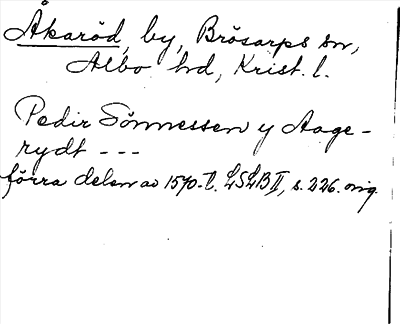 Åkaröd, by, Brösarps sn,
Albo hd, Krist. l.
Pedir Sönnessen y Aage-
rydt ---
förra delen av 1570-t. LSLB II, s. 226. orig.